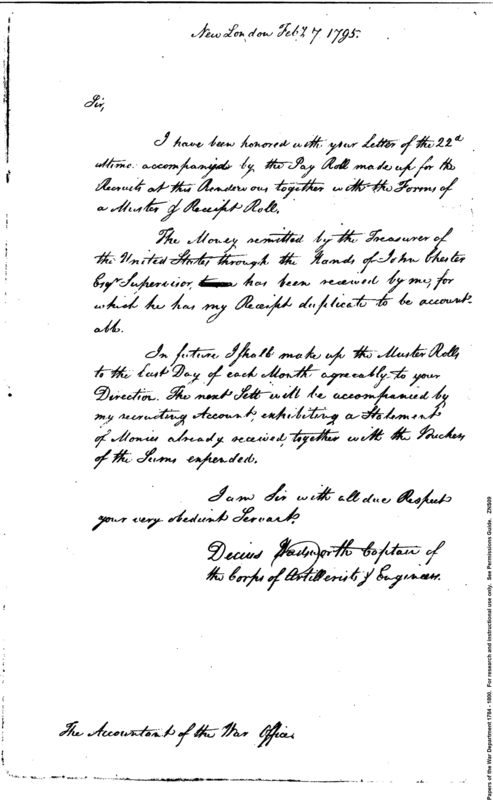 New London Feby. 7 1795.
Sir,
I have been honored with your Letter of the 22d
ultimo accompanyed by the Pay Roll made up for the
Recruits at this Rendezvous together with the Forms of
a Muster & Receipt Roll.
The Money remitted by the Treasurer of
the United States through the Hands of John Chester
Esqr Supervisor, has been received by me, for
which he has my Receipt duplicate to be account-
able.
In future I shall make up the Muster Rolls
to the Last Day of each Month agreeably to your
Direction. The next Sett will be accompanied by
my recruiting Account, exhibiting a Statement
of Monies already received, together with the Vouchers
of the Sums expended.
I am Sir with all due Respect
your very obedient Servant.
Decius Wadsworth Captain of
the Corps of Artillerists & Engineers.
The Accountant of the War Office
Papers of the War Department 1784 - 1800. For research and instructional use only. See Permissions Guide. ZNS09